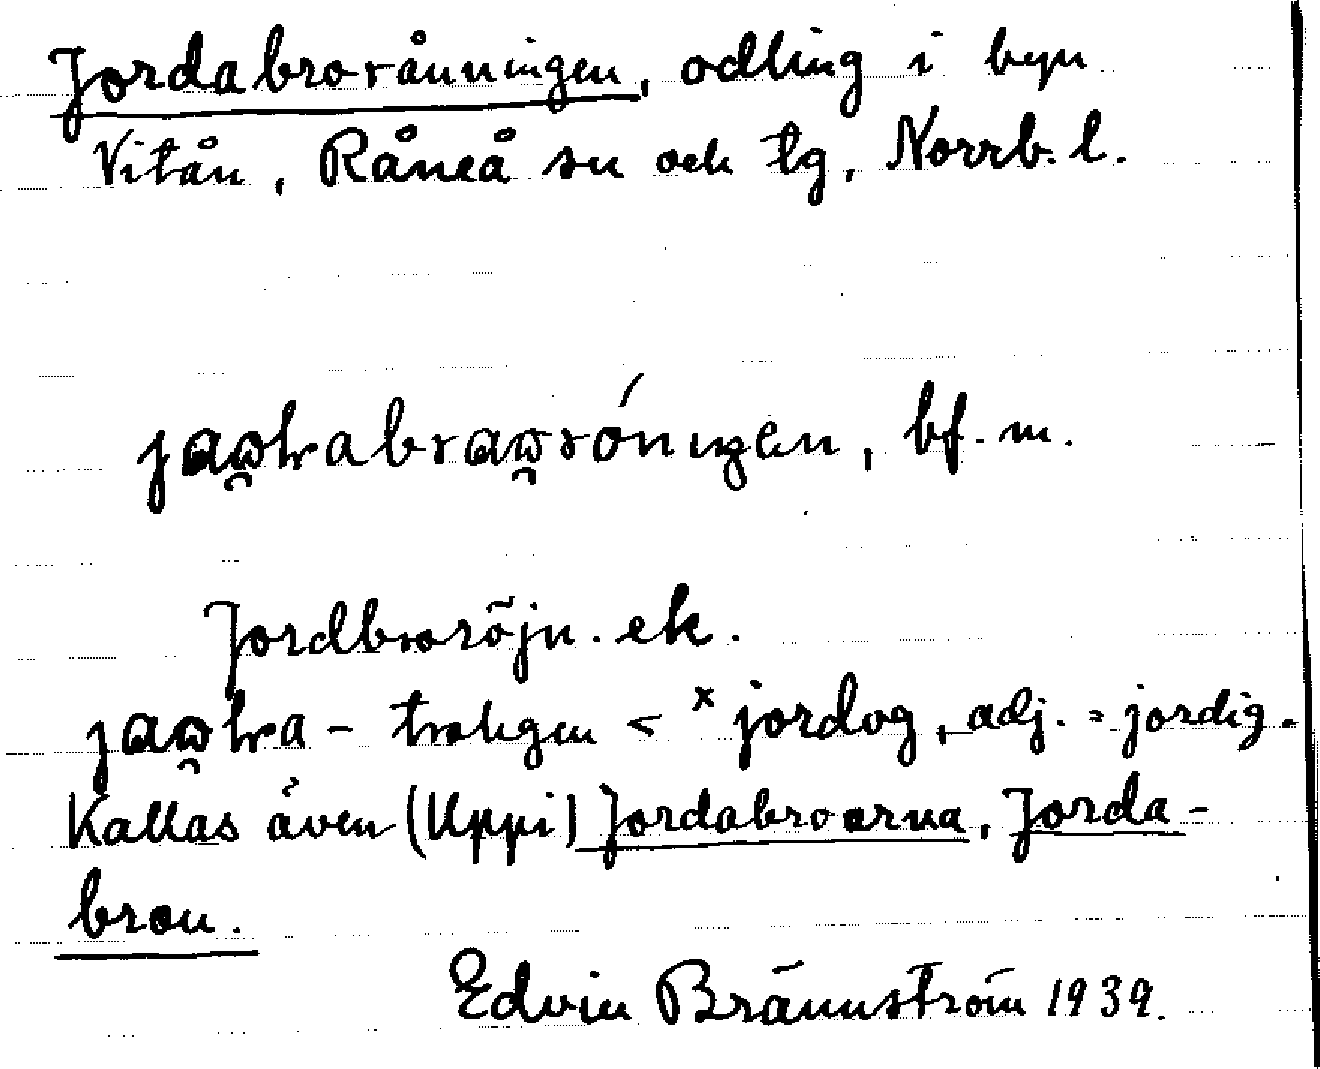 Jordabroränningen, odling i byn
Vitån, Råneå sn och tg, Norrb. l.
bf. m.
Jordbroröjn. ek.
– troligen < × jordog, adj. = jordig.
Kallas även (Uppi) Jordabroarna, Jorda-
bron.
Edvin Brännström 1939.